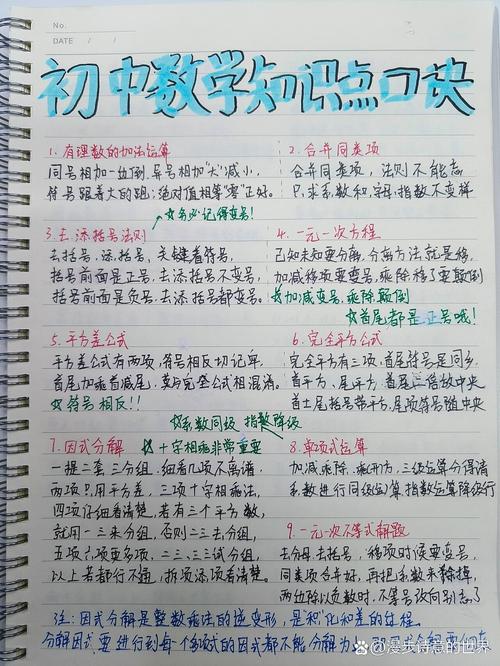 No.
DATE / /
初中数学知识点口诀
1. 有理数的加法运算
同号相加一边倒,异号相加"大"减小,
符号跟着大的跑;绝对值相等"零"正好。
2. 合并同类项
合并同类项,法则不能忘
只求系数和,字母、指数不变样
☆务必记得变号!
3. 去、添括号法则
去括号、添括号,关键看符号,
括号前面是正号,去添括号不变号,
括号前面是负号,去添括号都变号。
4. 一元一次方程
已知未知要分离,分离方法就是移,
加减移项要变号,乘除移了要颠倒
☆加减变号,乘除颠倒
☆首尾都是正号哦!
5. 平方差公式
平方差公式有两项,符号相反切记牢,
首尾加乘首减尾,莫与完全公式相混淆。
☆符号相反!!
6. 完全平方公式
完全平方有三项,首尾符号是同乡,
首平方、尾平方,首尾二倍放中央
首±尾括号带平方,尾项符号随中央
☆系数同级 指数降级
7. 因式分解 ☆十字相乘非常重要
一提二套三分组,细看几项不离谱,
两项只用平方差,三项十字相乘法,
四项仔细看清楚,若有三个平方数,
就用一三来分组,否则二三去分组,
五项、六项更多项,二三、三三试分组,
以上若都行不通,拆项添项看清楚。
8. 单项式运算
加减乘除、乘开方,三级运算分得清
系数进行同级运算,指数运算降级行
9. 一元一次不等式解题
去分母、去括号,移项时候要变号,
同类项合并好,再把系数来除掉,
两边除以负数时,不等号改向别忘了
注:因式分解是整数乘法的逆变形,是积化和差的过程
分解因式要进行到每一个多项式的因式都不能分解为止
漫步诗意的世界